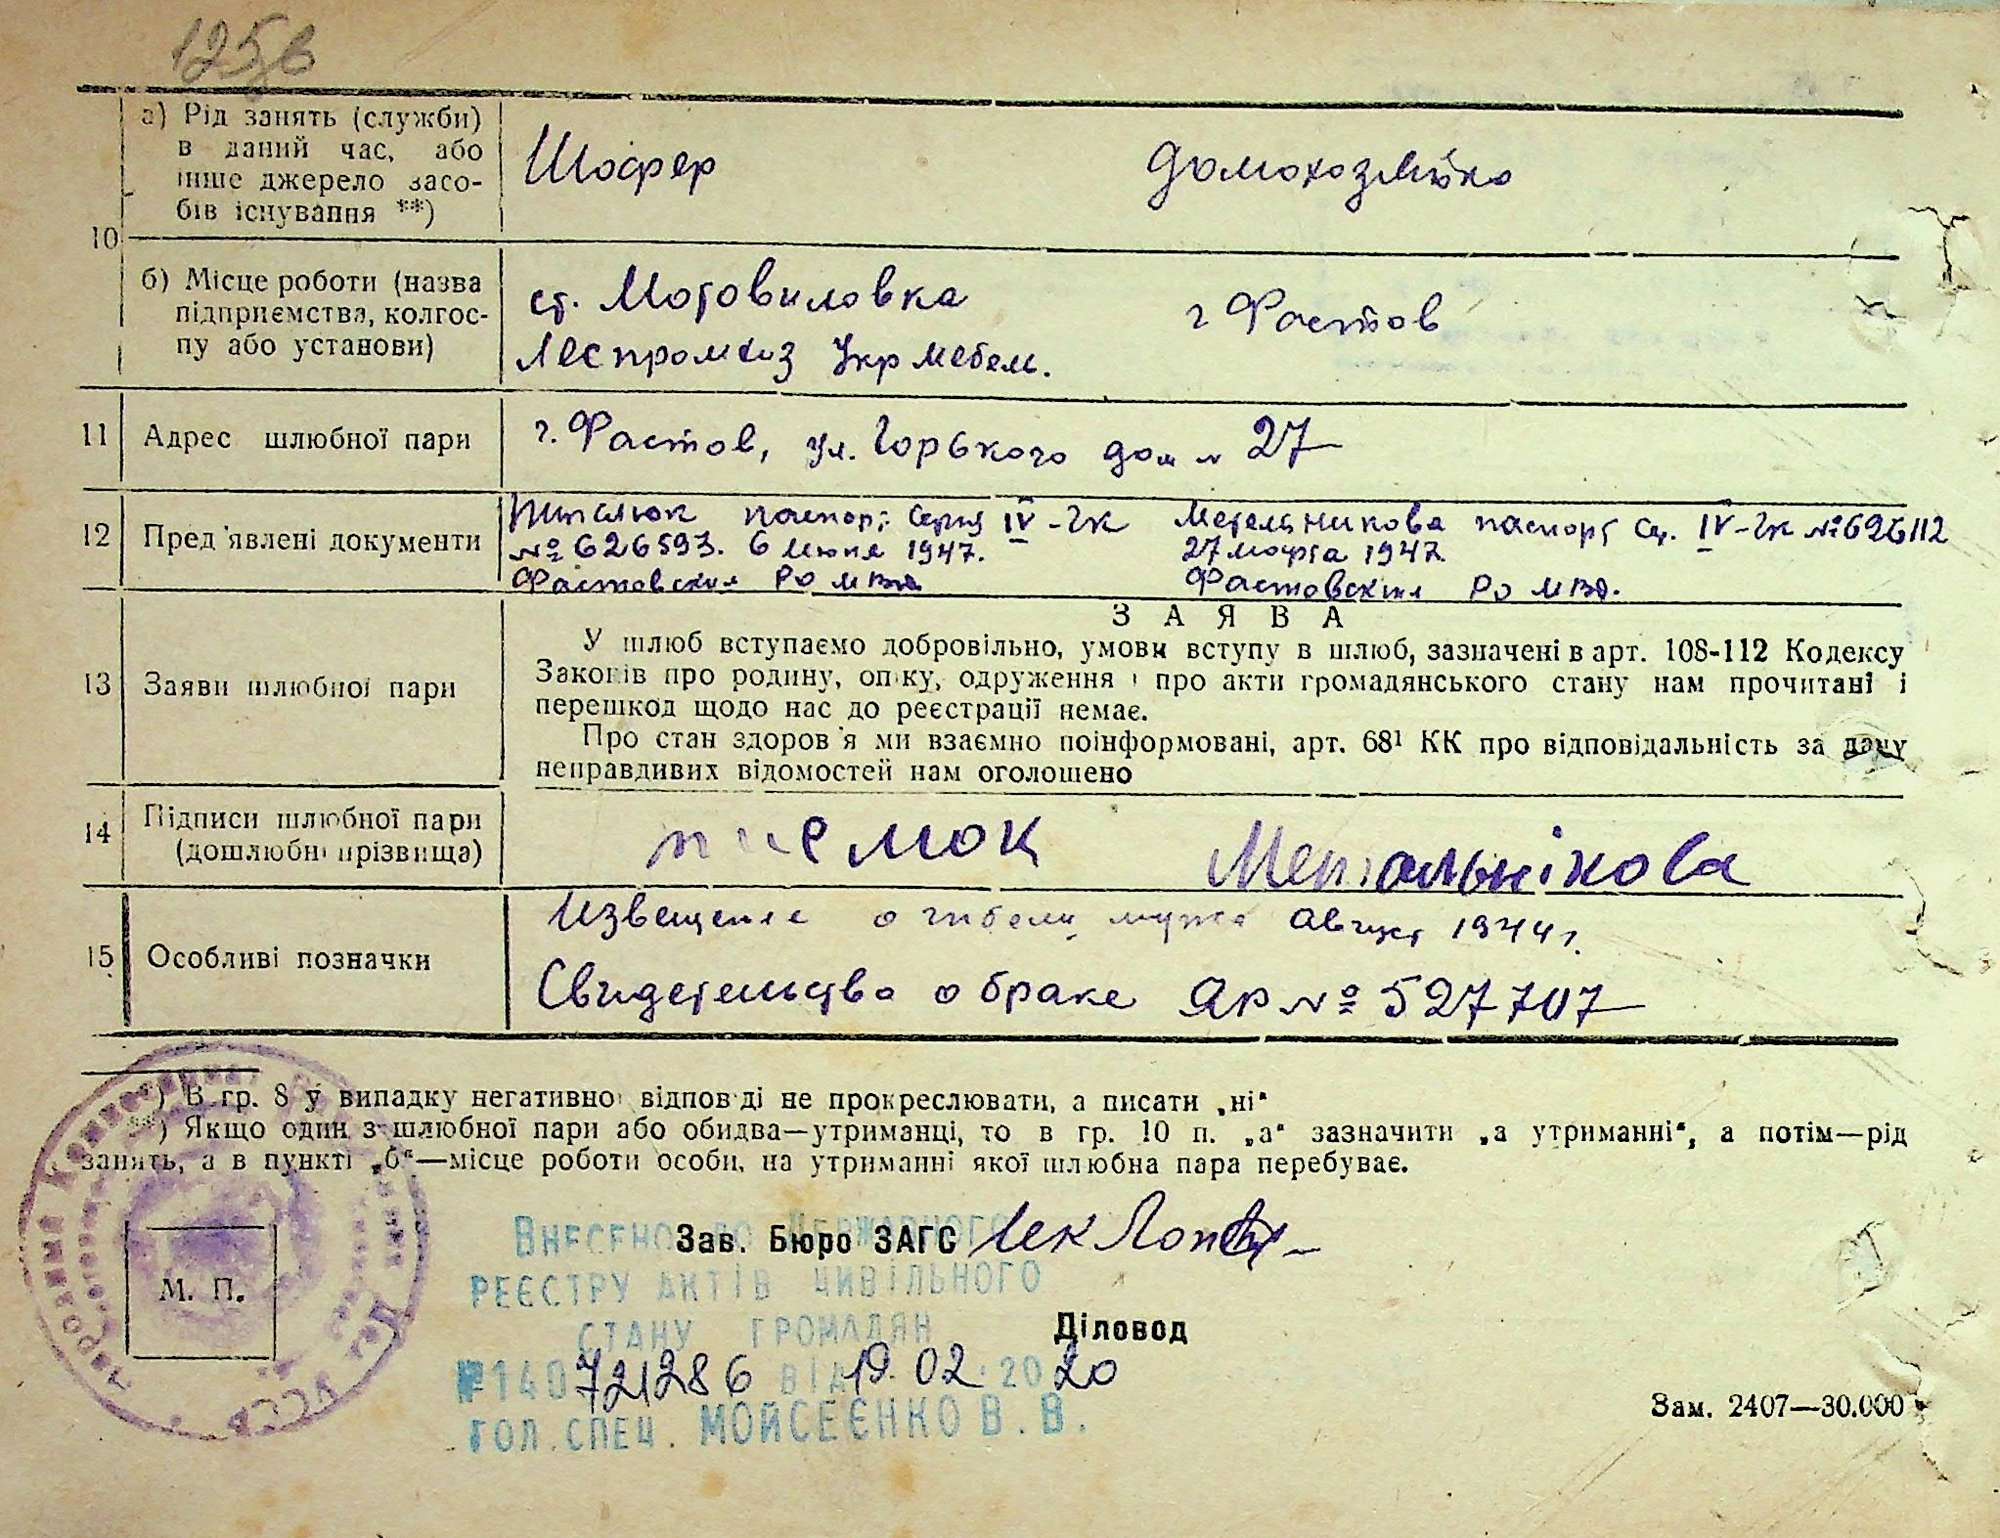 125
а) Рід занять (служби)
в даний час, або
інше джерело засо-
бів існування **)
Шофер
домохозяйка
10
б) Місце роботи (назва
підприємства, колгос-
пу або установи)
ст. Мотовиловка
Леспромхоз Укрмебель.
г Фастов
11 Адрес шлюбної пари
г. Фастов, ул. Горького дом № 27
12 Пред'явлені документи
паспорт серия IV-ЧК
№ 626593. 6 Июня 1947.
Фастовский РО МВД
Метельникова паспорт сер. IV-ЧК № 626112
27 марта 1947.
Фастовский РО МВД.
13 Заяви шлюбної пари
ЗАЯВА
У шлюб вступаємо добровільно, умови вступу в шлюб, зазначені в арт. 108-112 Кодексу
Законів про родину, опіку, одруження і про акти громадянського стану нам прочитані і
перешкод щодо нас до реєстрації немає.
Про стан здоров'я ми взаємно поінформовані, арт. 68¹ КК про відповідальність за дачу
неправдивих відомостей нам оголошено
14 Підписи шлюбної пари
(дошлюбні прізвища)
Метельнікова
15 Особливі позначки
Извещение о гибели мужа август 1944 г.
Свидетельство о браке ЯР № 527707
*) В гр. 8 у випадку негативної відповіді не прокреслювати, а писати „ні“
**) Якщо один з шлюбної пари або обидва—утриманці, то в гр. 10 п. „а“ зазначити „а утриманні“, а потім—рід
занять, а в пункті „б“—місце роботи особи, на утриманні якої шлюбна пара перебуває.
М. П.
Зав. Бюро ЗАГС
Діловод
Внесено до Державного
реєстру актів цивільного
стану громадян
№ 140721286 від 19.02.2020
гол. спец. Мойсеєнко В. В.
УССР
Зам. 2407—30.000